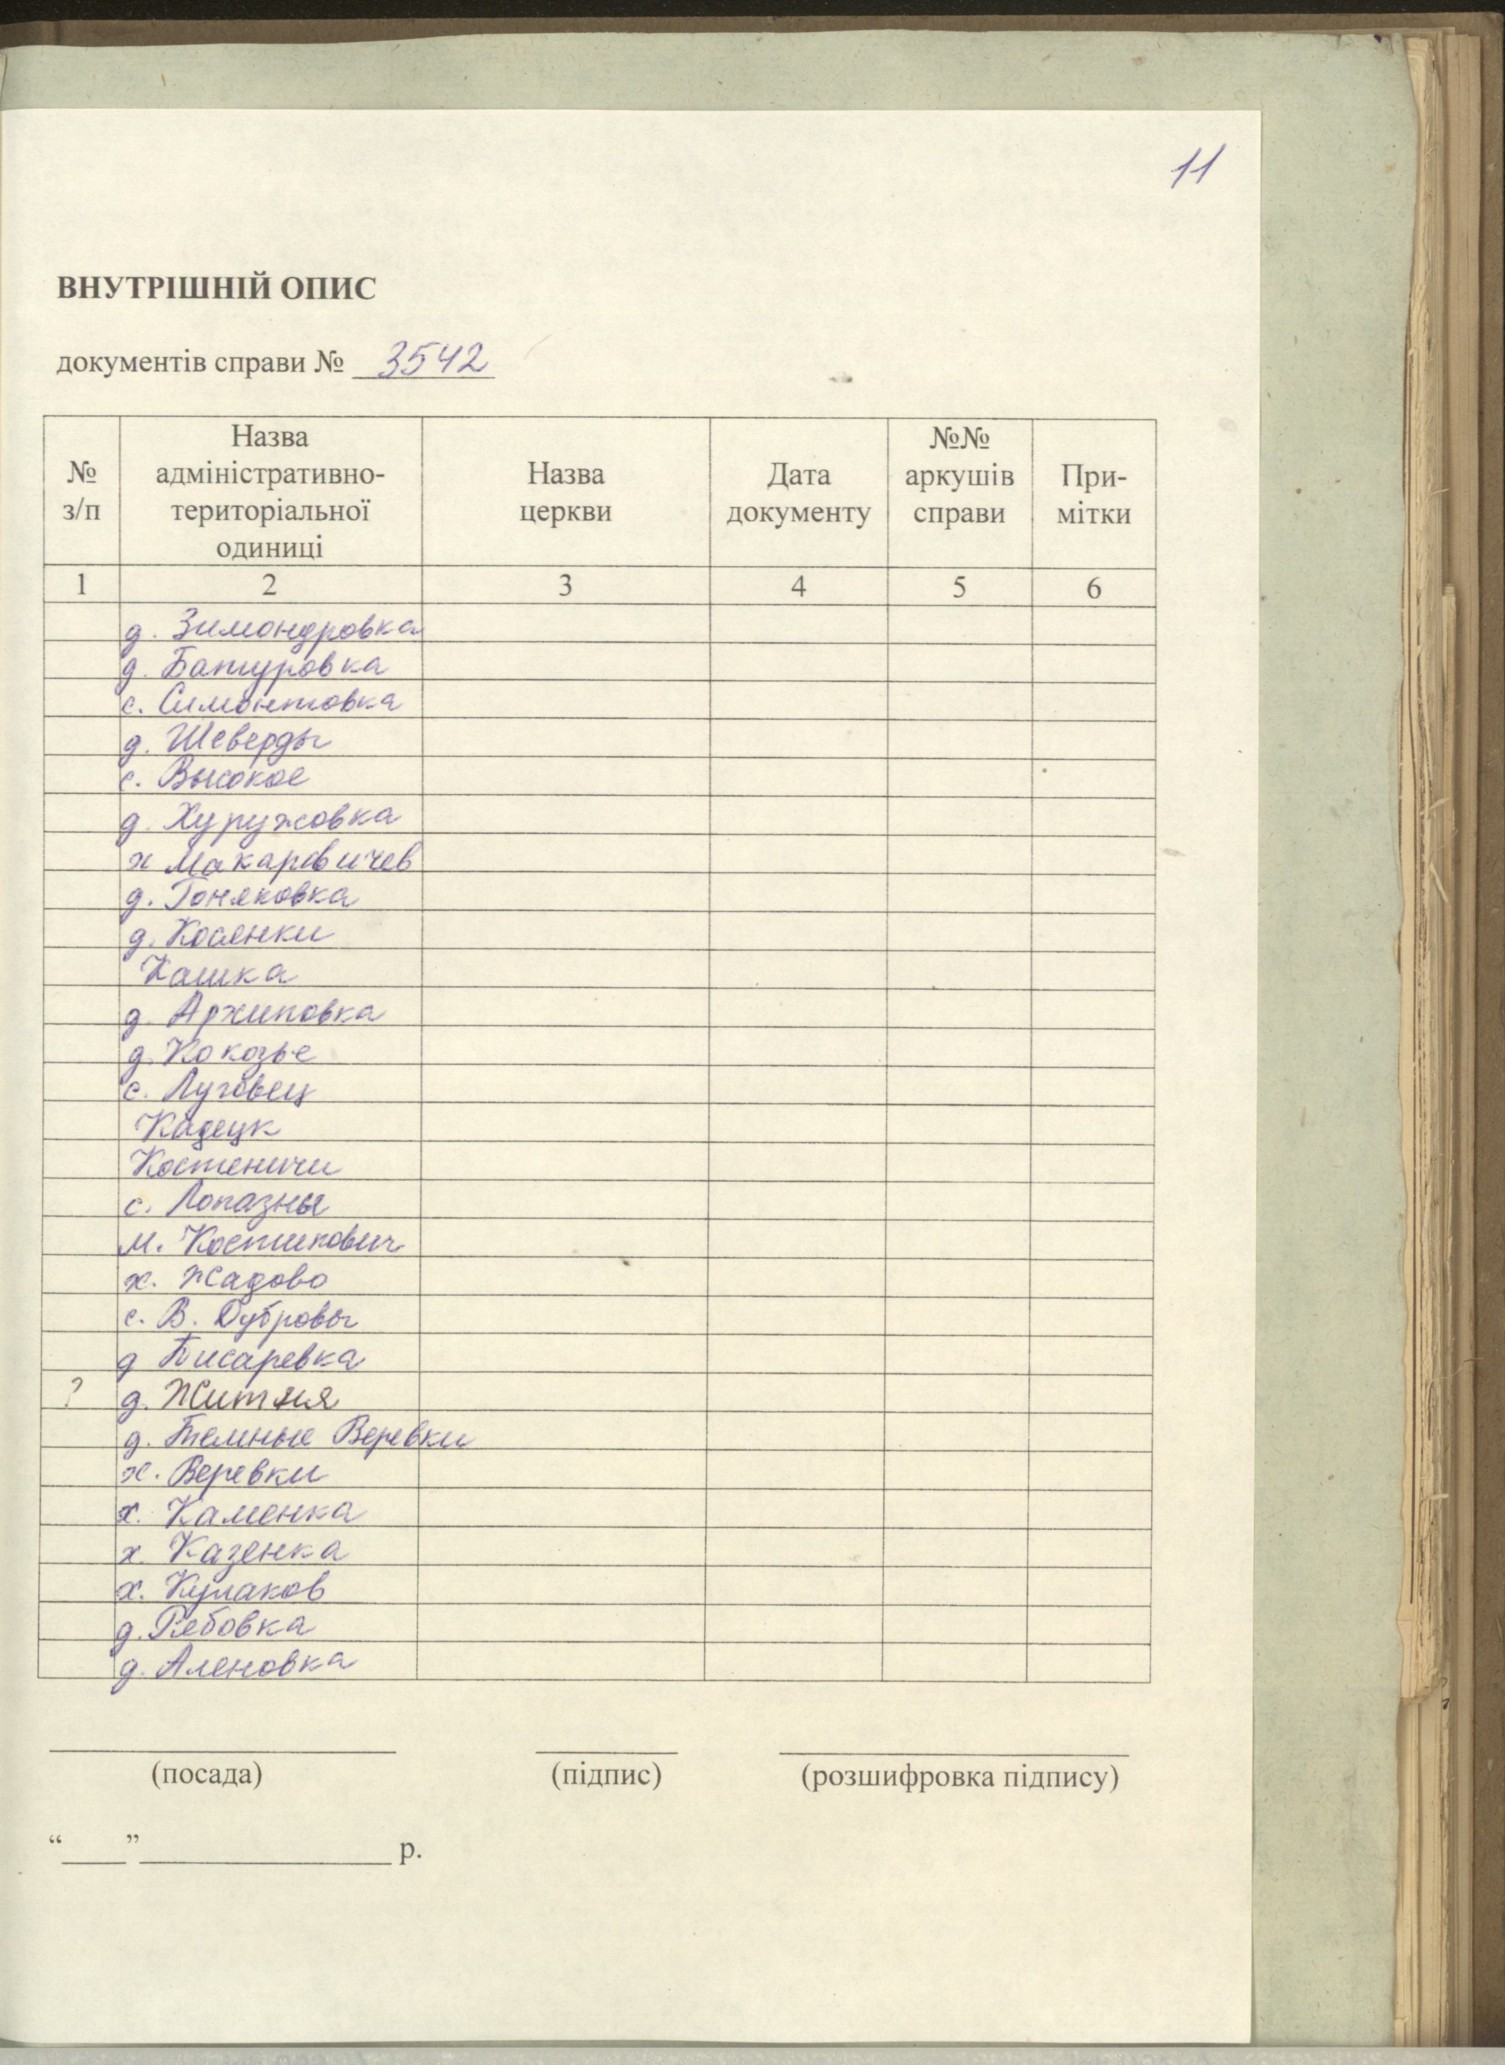 11
ВНУТРІШНІЙ ОПИС
документів справи № 3542
№ з/п
Назва адміністративно-територіальної одиниці
Назва церкви
Дата документу
№№ аркушів справи
Примітки
1 2 3 4 5 6
д. Зимондровка
д. Батуровка
с. Симонтовка
д. Шеверды
с. Высокое
д. Хуружовка
х Макаровичев
д. Гоняковка
д. Косянки
Кашка
д. Архиповка
д. Кокозье
с. Луговец
Кадецк
Костеничи
с. Лопазны
м. Костипович
х. Жадово
с. В. Дубровы
д Писаревка
? д. Житня
д. Темные Веревки
х. Веревки
х. Каменка
х. Казенка
х. Кулаков
д. Рябовка
д. Аленовка
(посада) (підпис) (розшифровка підпису)
“____”________________ р.